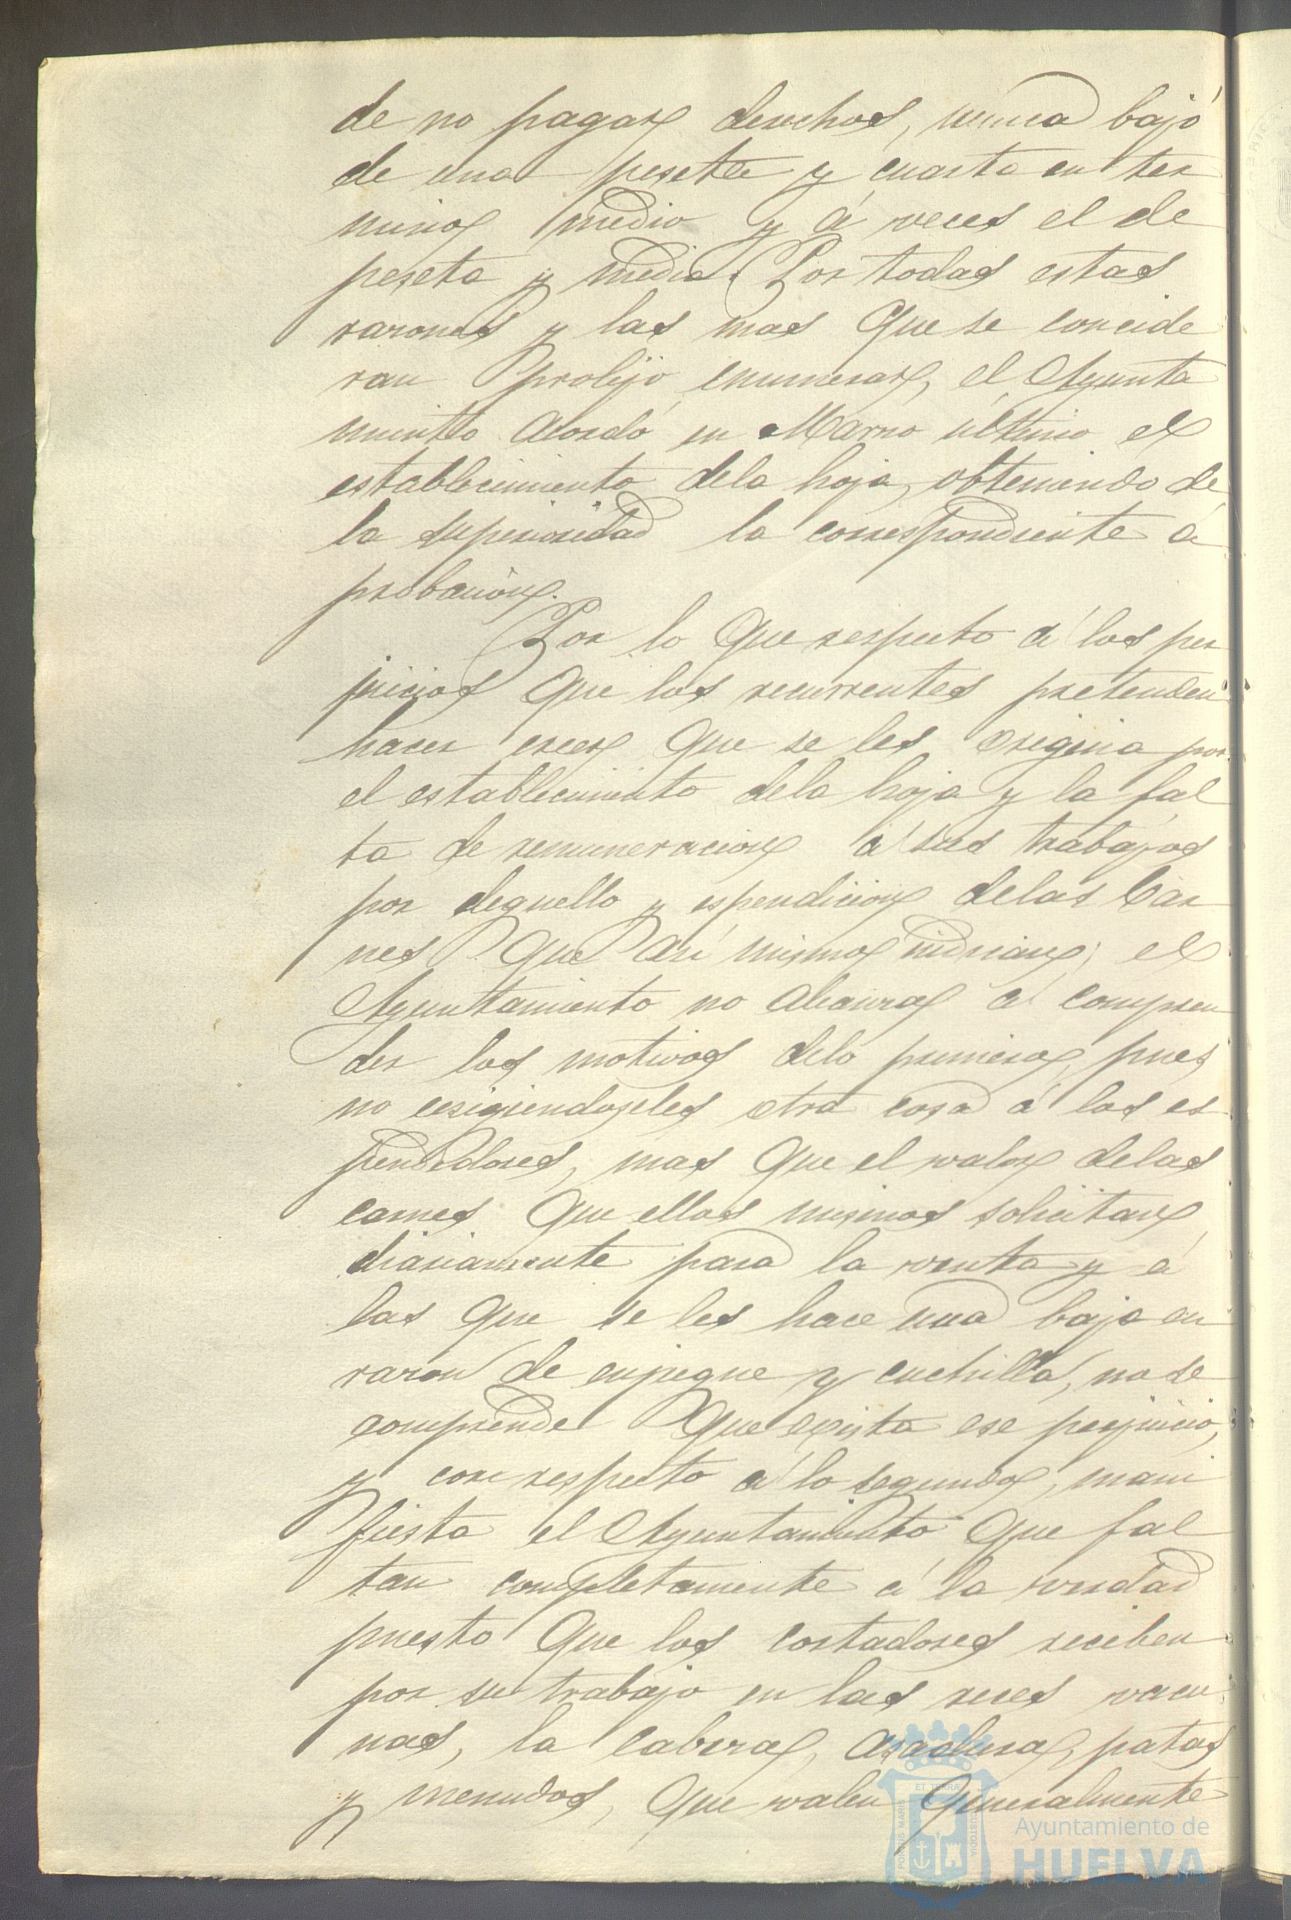 de no pagar derechos, nunca bajó
de una peseta y cuarta en ter
mino medio y á veces el de
peseta y media. Por todas estas
razones y las mas que se concide
ran prolijo enumerar, el Ayunta
miento acordó en Marzo último el
establecimiento dela hoja, obteniendo de
la superioridad la correspondiente á
probacion.
Por lo que respecto á los per
juicios que los recurrentes pretenden
hacer creer que se les origina por
el establecimiento dela hoja y la fal
ta de remuneracion á sus trabajos
por deguello y espendicion delas Car
nes que asi mismo indican; el
Ayuntamiento no alcanza á compren
der los motivos delo primero, pues
no ecsigiendoseles otra cosa á los es
pendedores, mas que el valor delas
carnes que ellos mismos solicitan
diariamente para la venta y á
las que se les hace una baja en
razon de enjugue y cuchilla, no se
comprende que exista ese perjuicio,
y con respecto á lo segundo, mani
fiesta el Ayuntamiento que fal
tan completamente á la verdad
puesto que los cortadores reciben
por su trabajo en las reses vacu
nas, la cabeza, asadura, patas
y menudos, que valen generalmente
PORTUS MARIS ET TERRAE CUSTODIA
Ayuntamiento de
HUELVA